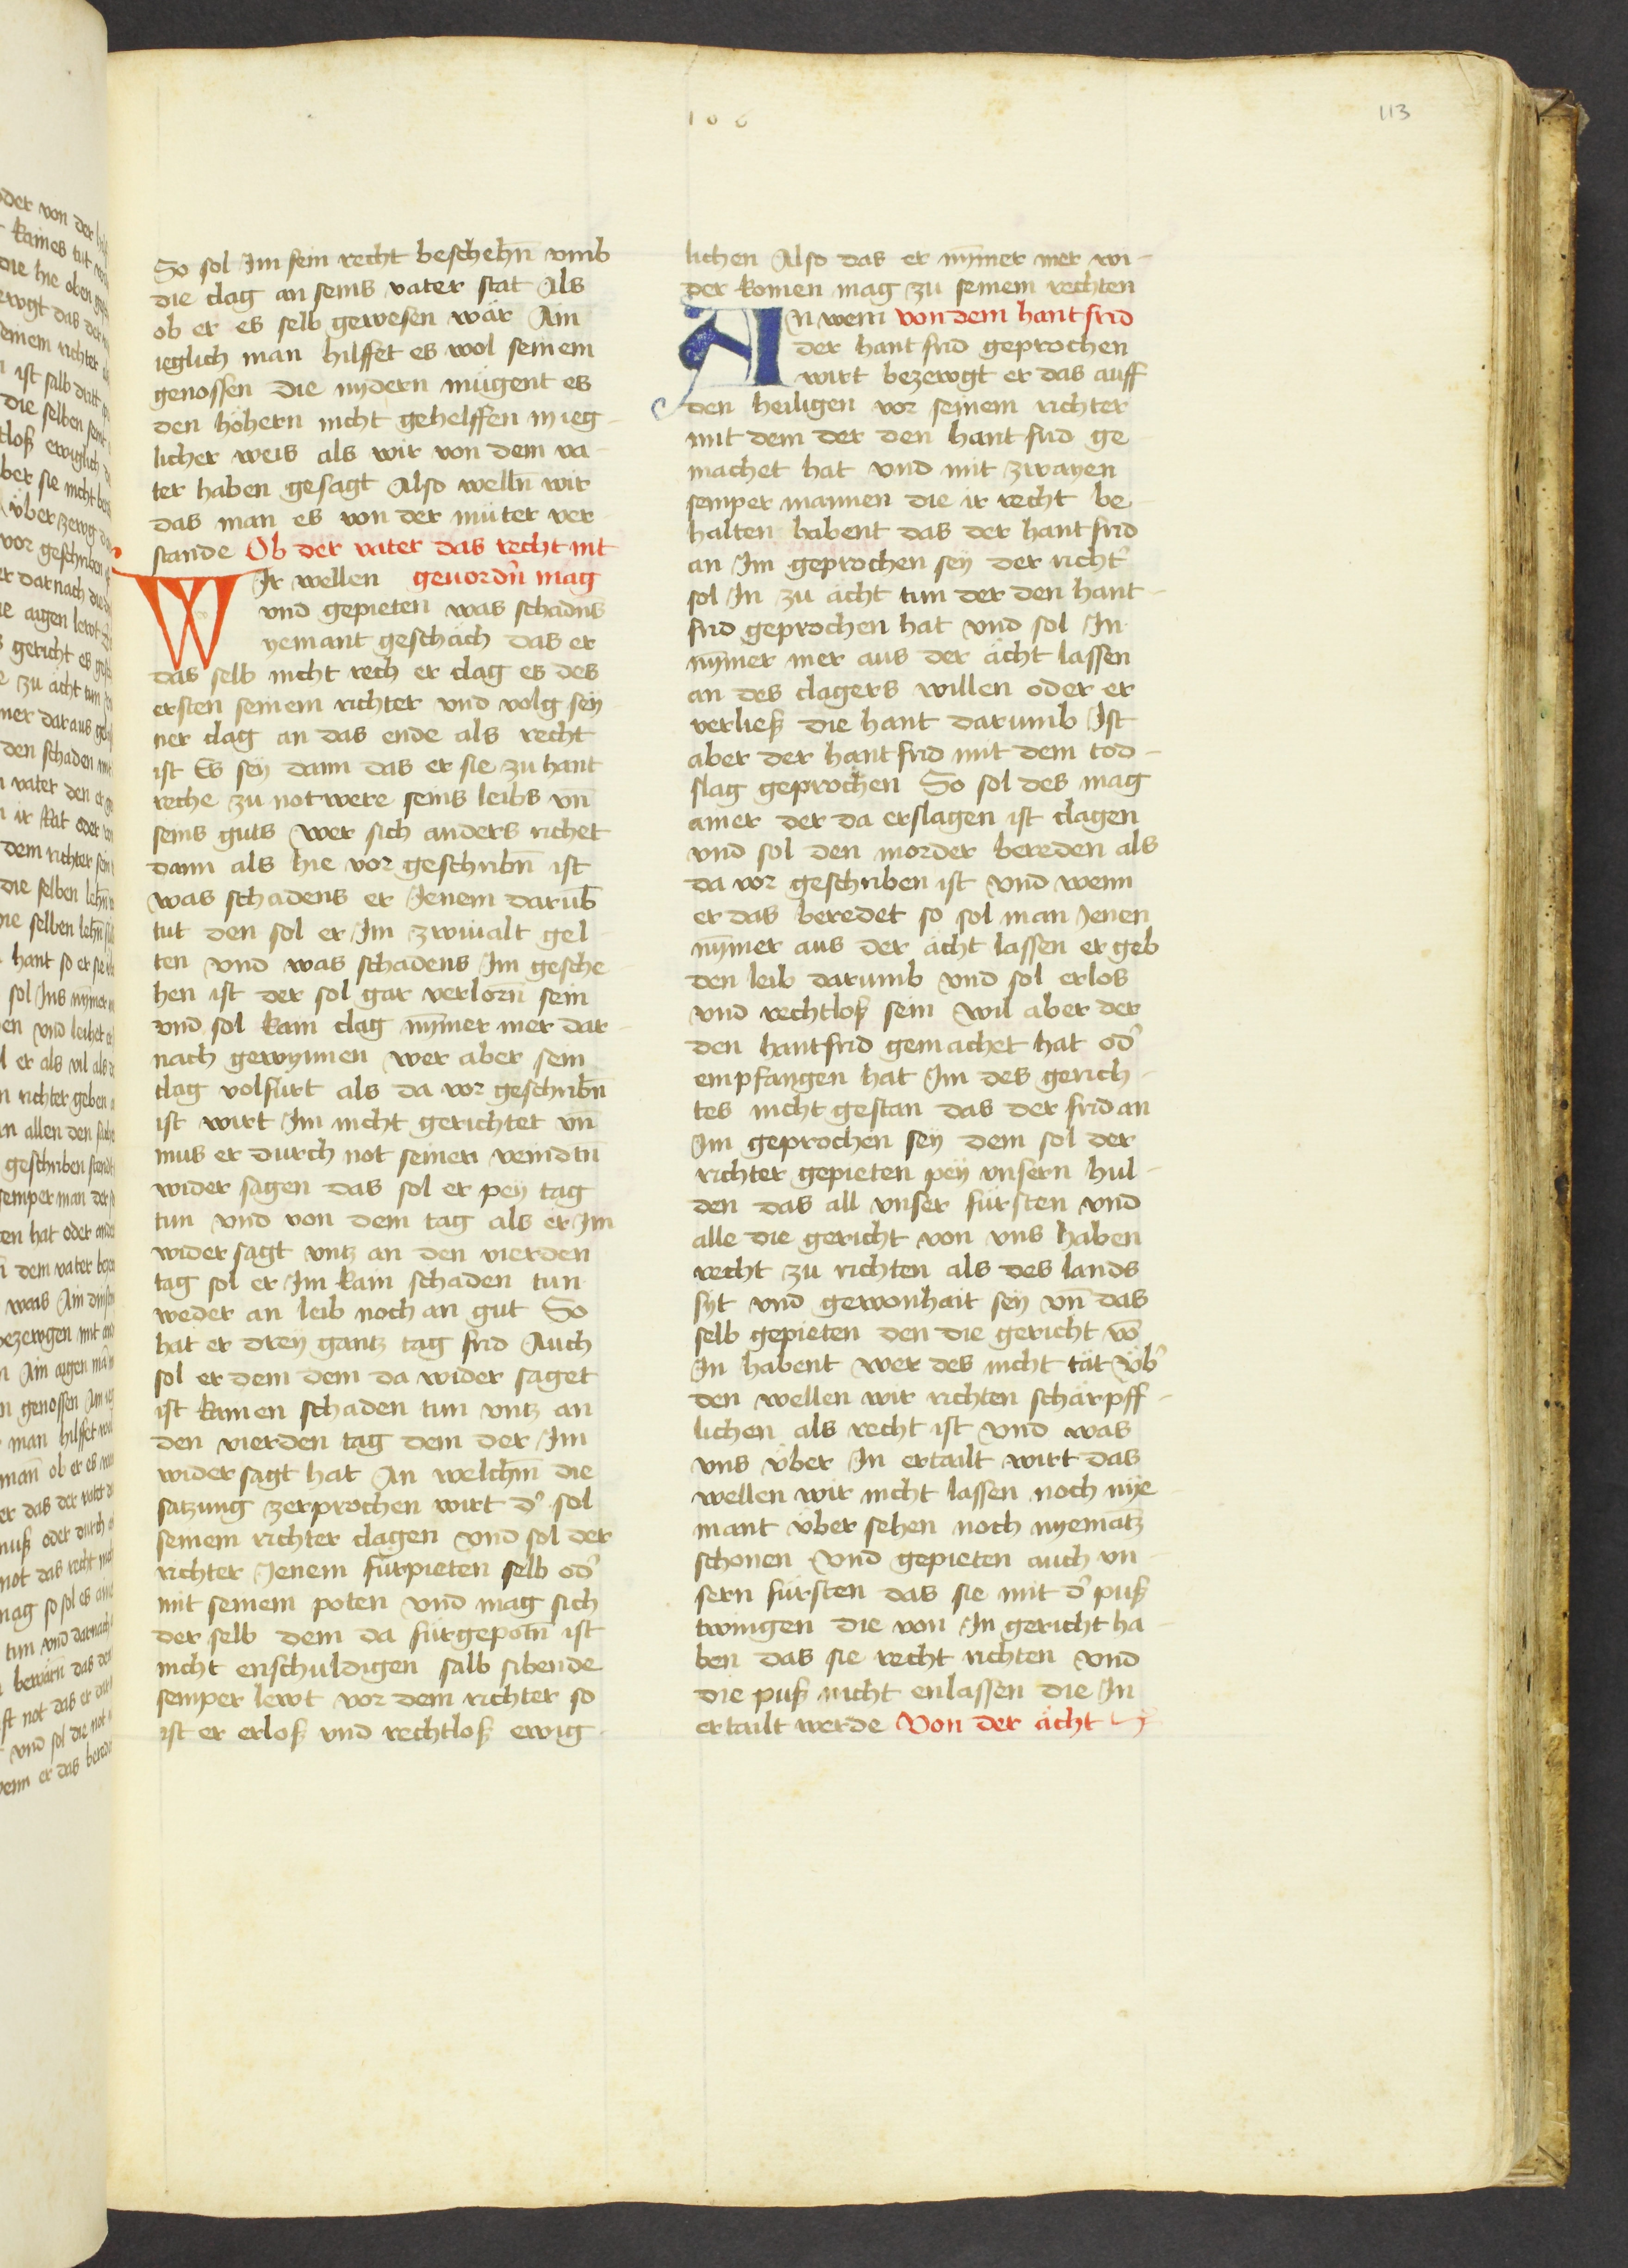 106
113
So sol Im sein recht beschehn̄ vmb
die clag an seins vater stat Als
ob er es selb gewesen wär Ain
ieglich man hilffet es wol seinem
genossen die nydern mügent es
den höhern nicht gehelffen in ieg-
licher weis als wir von dem va-
ter haben gesagt Also welln̄ wir
das man es von der müter ver-
stande Ob der vater das recht nit
WIr wellen geuordn̄ mag
vnd gepieten was schadn̄s
yemant geschäch das er
das selb nicht rech er clag es des
ersten seinem richter vnd volg sey-
ner clag an das ende als recht
ist Es sey dann das er sie zu hant
reche zu notwere seins leibs vn̄
seins guts wer sich anders richet
dann als hie vor geschribn̄ ist
was schadens er Jenem darūb
tut den sol er Im zwiualt gel-
ten vnd was schadens Im gesche-
hen ist der sol gar verlorn̄ sein
vnd sol kain clag nȳmer mer dar-
nach gewynnen wer aber sein
clag volfürt als da vor geschribn̄
ist wirt Im nicht gerichtet vn̄
mus er durch not seinen veindtn̄
wider sagen das sol er pey tag
tun vnd von dem tag als er Im
widersagt vntz an den vierden
tag sol er Im kain schaden tun
weder an leib noch an gut So
hat er drey gantz tag frid Auch
sol er dem dem da wider saget
ist kainen schaden tun vntz an
den vierden tag dem der Im
widersagt hat An welchm̄ die
satzung zerprochen wirt d' sol
seinem richter clagen vnd sol der
richter Jenem fürpieten selb od'
mit seinem poten vnd mag sich
der selb dem da fürgepotn̄ ist
nicht enschuldigen salb sibende
semper lewt vor dem richter so
ist er erloß vnd rechtloß ewig-
lichen Also das er nȳmer mer wi-
der komen mag zu seinem rechten
AN wem von dem hantfrid
der hant frid geprochen
wirt bezewgt er das auff
den heiligen vor seinem richter
mit dem der den hant frid ge-
machet hat vnd mit zwayen
semper mannen die ir recht be-
halten habent das der hant frid
an Im geprochen sey der richt'
sol In zu ächt tun der den hant-
frid geprochen hat vnd sol In
nȳmer mer aus der ächt lassen
an des clagers willen oder er
verließ die hant darumb Ist
aber der hantfrid mit dem tod-
slag geprochen So sol des mag
ainer der da erslagen ist clagen
vnd sol den morder bereden als
da vor geschriben ist vnd wenn
er das beredet so sol man Jenen
nȳmer aus der ächt lassen er geb
den leib darumb vnd sol erlos
vnd rechtloß sein wil aber der
den hantfrid gemachet hat od'
empfangen hat Im des gerich-
tes nicht gestan das der frid an
Im geprochen sey dem sol der
richter gepieten pey vnsern hul-
den das all vnser fürsten vnd
alle die gericht von vns haben
recht zu richten als des lands
syt vnd gewonhait sey vn̄ das
selb gepieten den die gericht vō
In habent wer des nicht tät vb'
den wellen wir richten schärpff-
lichen als recht ist vnd was
vns über In ertailt wirt das
wellen wir nicht lassen noch nye-
mant über sehen noch nyematz
schonen vnd gepieten auch vn-
sern fürsten das sie mit d' puß
twingen die von In gericht ha-
ben das sie recht richten vnd
die puß nicht enlassen die In
ertailt werde Von der ächt